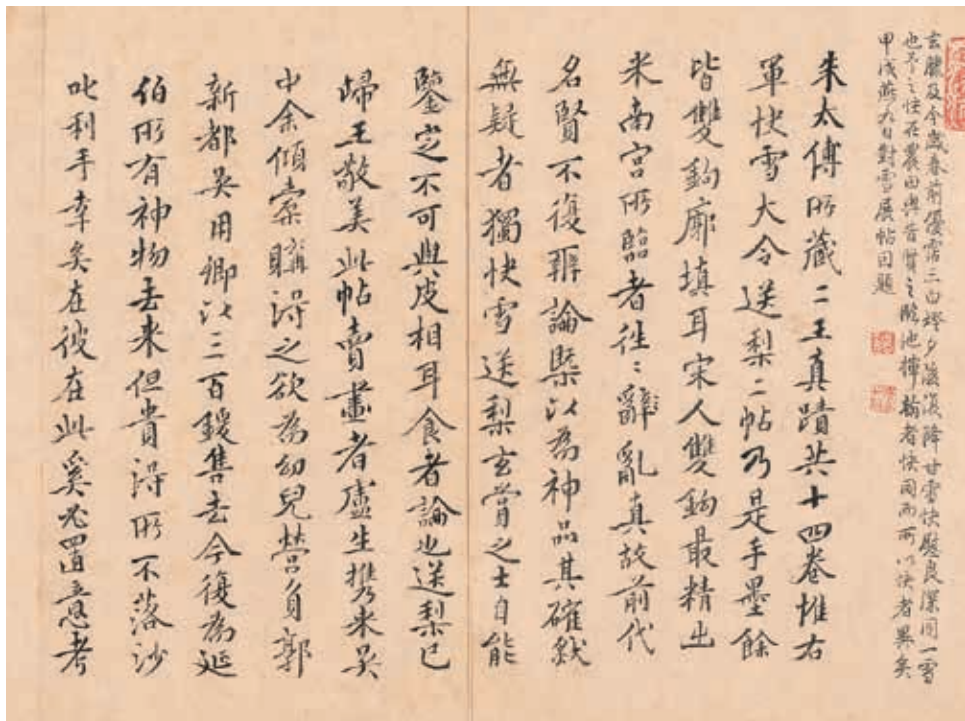 臘及今歲春前優霑三白夕後復降甘雪快慰良深同一雪
也之快在農田與昔賢之臨池揮翰者快同而所以快者異矣
甲戌燕九日對雪展帖因題
朱太傅所藏二王真蹟共十四卷惟右
軍快雪大令送梨二帖乃是手墨餘
皆雙鉤廓填耳宋人雙鉤最精出
米南宮所臨者往〻辭亂真故前代
名賢不復辨論槩以為神品其確然
無疑者獨快雪送梨玄賞之士自能
鑒定不可與皮相耳食者論也送梨已
歸王敬美此帖賣畫者盧生攜來吳
中余傾橐購得之欲為幼兒營負郭
新都吳用卿以三百鍰售去今復為延
伯所有神物去來但貴得所不落沙
叱利手幸矣在彼在此奚必置意考